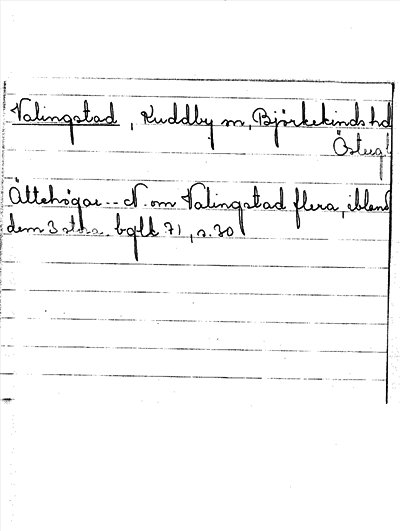 Valingstad, Kuddby sn, Björkekinds hd
Österg
Ättehögar -- N. om Valingstad flera, ibland
dem 3 st. 71, s. 30